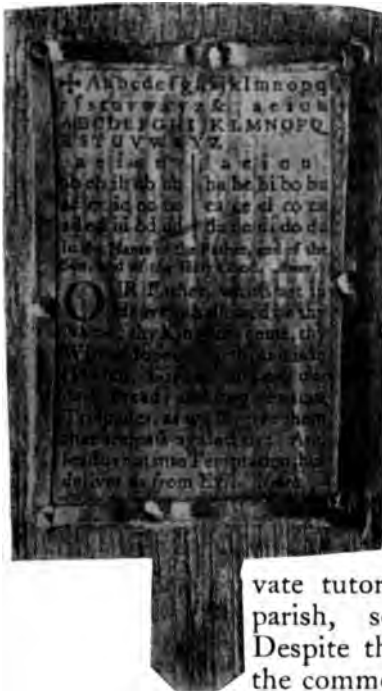 ✠ Aabcdefghijklmnopq
rſstuvwxyz& aeiou
ABCDEFGHIJKLMNOPQ
RSTUVWXYZ
a e i o u a e i o u
ab eb ib ob ub ba be bi bo bu
ac ec ic oc uc ca ce ci co cu
ad ed id od ud da de di do du
In the Name of the Father, and of the
Son, and of the Holy Ghost.
OUR Father, which art in
Heaven, hallowed be thy
Name; thy Kingdom come, thy
Will be done on Earth, as it is in
Heaven.
Bread; and forgive us our
Trespasses, as we forgive them
that trespass against us: And
lead us not into Temptation, but
deliver us from
vate tutor
parish, s
Despite th
the comm